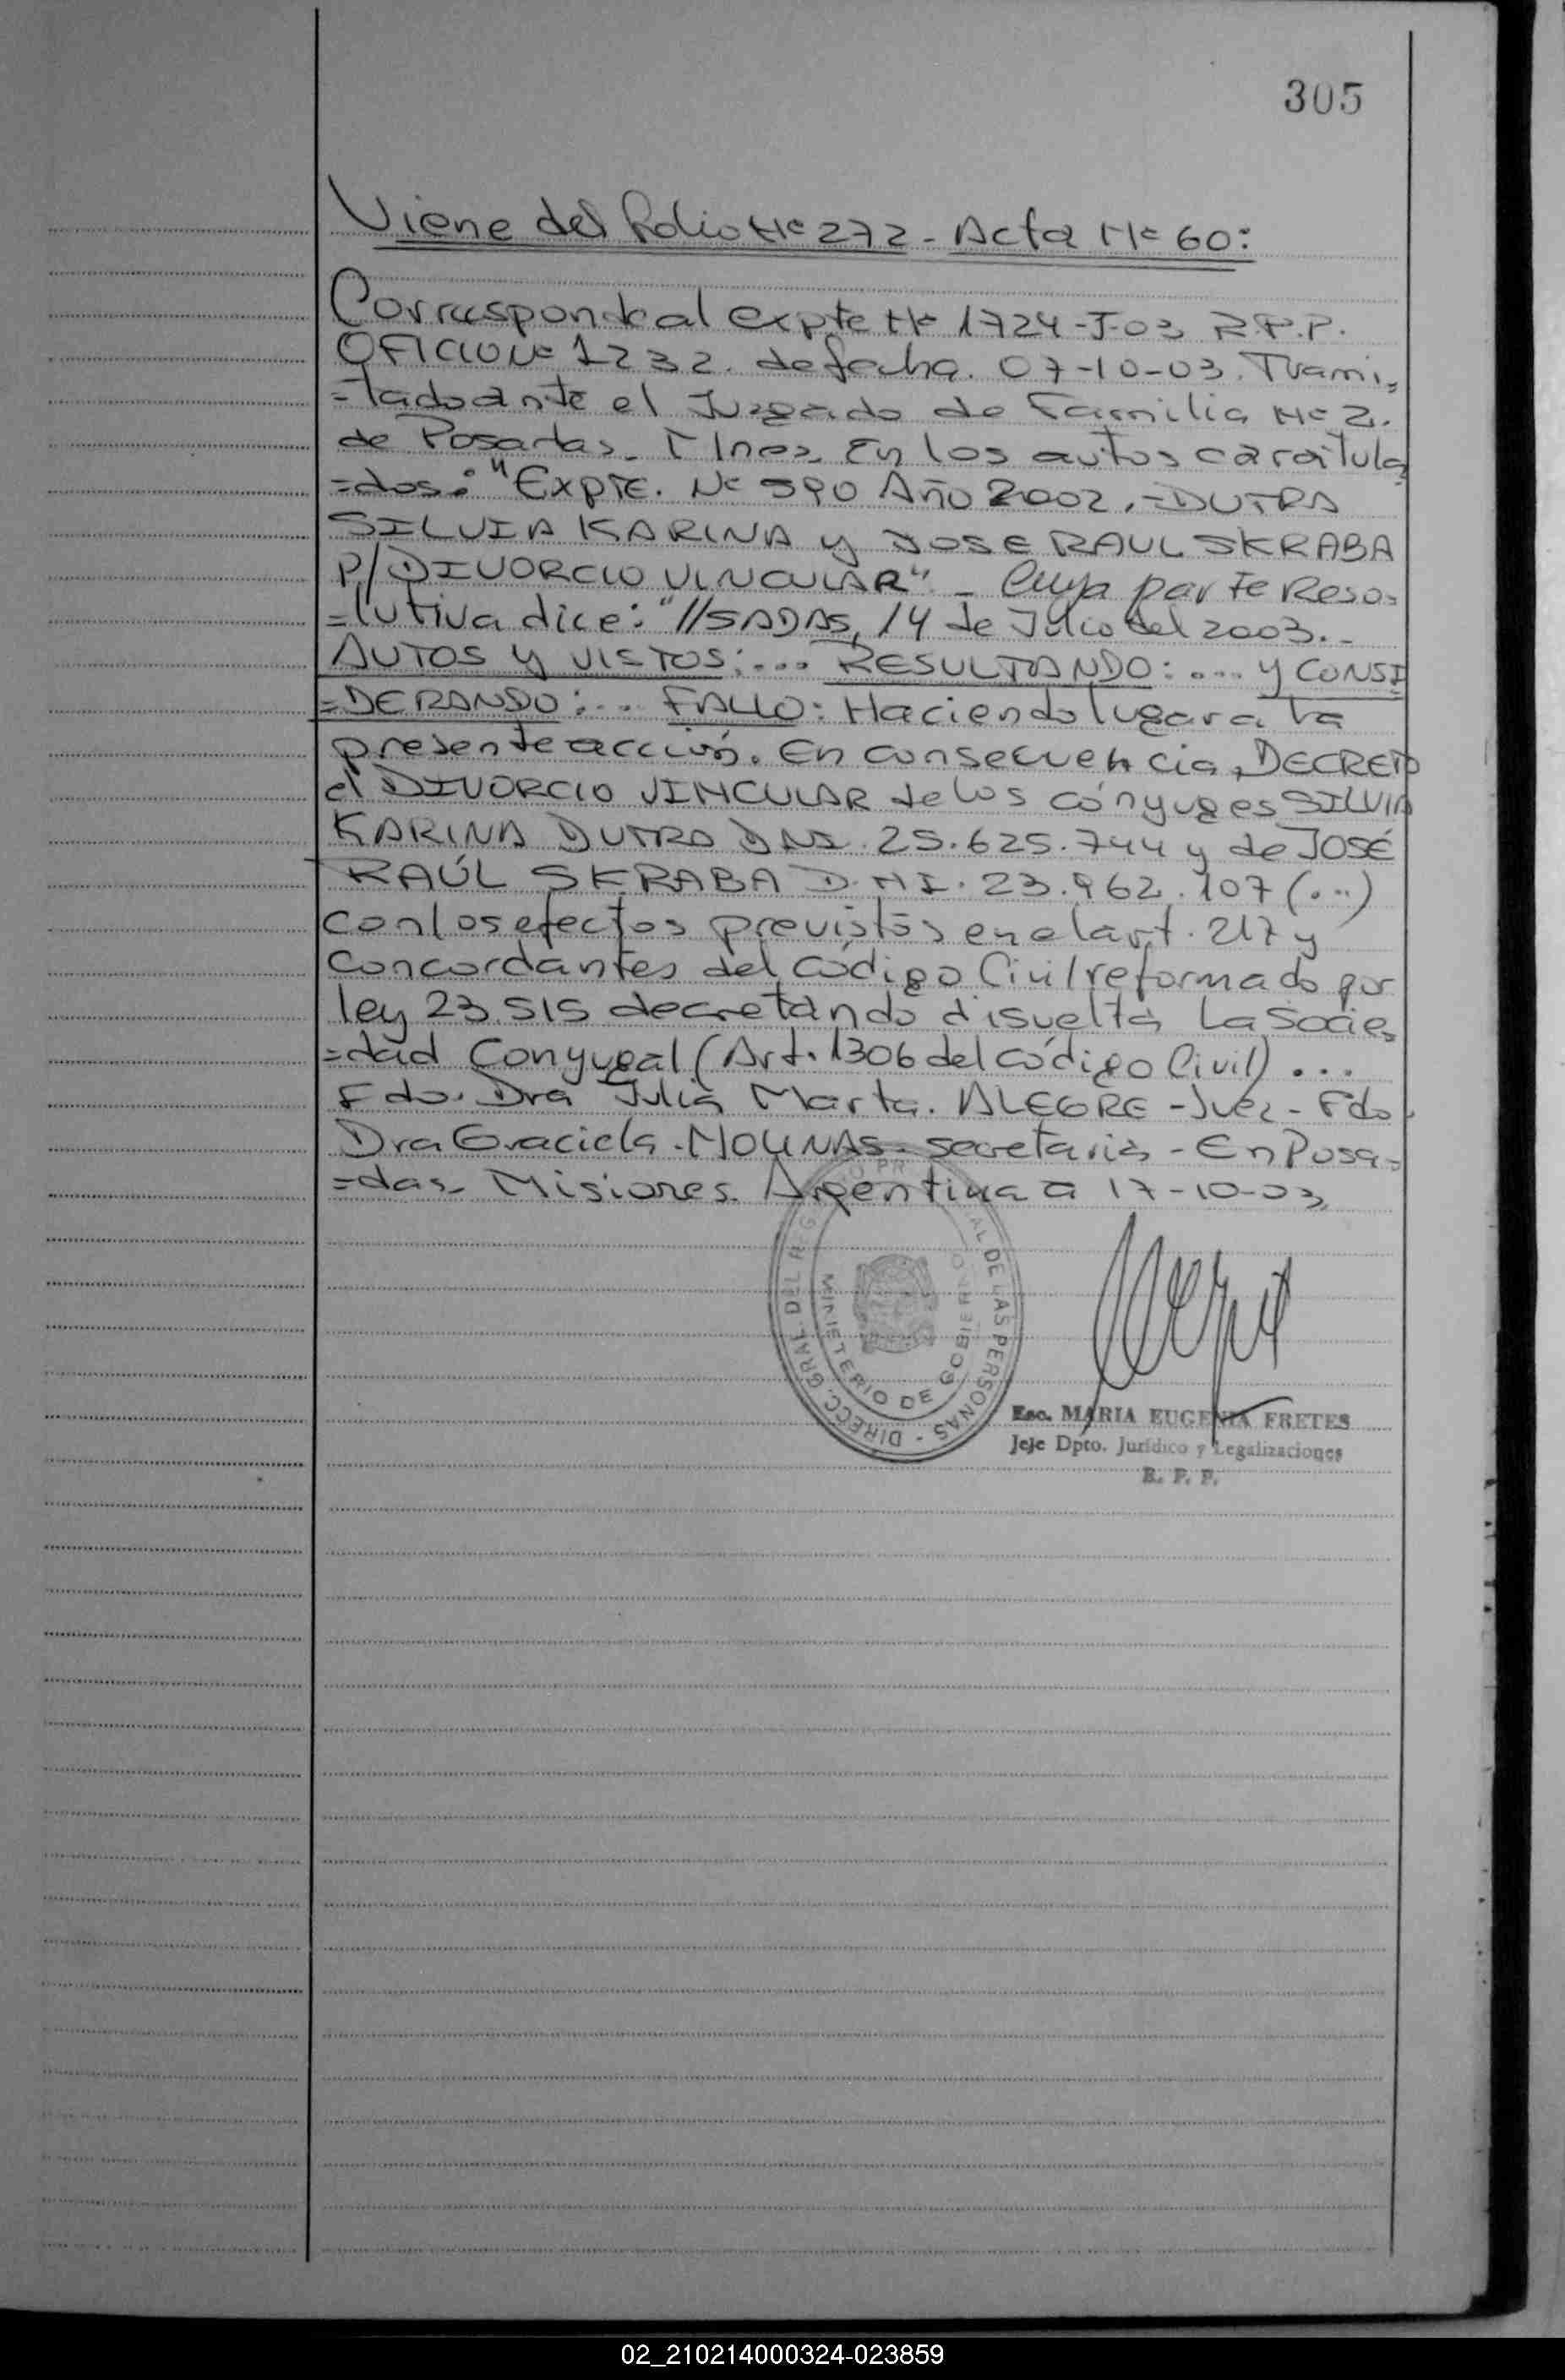 305
Viene del Folio Nº 272 - Acta Nº 60:
Corresponde al expte Nº 1724-J-03 R.P.P.
OFICIO Nº 1232. de fecha. 07-10-03. Trami=
=tado ante el Juzgado de Familia Nº 2.
de Posadas. Mnes. En los autos caratula
=dos: "Expte. Nº 590 Año 2002, =DUTRA
SILVIA KARINA y JOSE RAUL SKRABA
P/DIVORCIO VINCULAR" - Cuya parte Reso=
=lutiva dice: "//SADAS, 14 de Julio del 2003.-
AUTOS Y VISTOS:... RESULTANDO: .... y CONSI
=DERANDO:... FALLO: Haciendo lugar a la
presente acción. En consecuencia, DECRETO
el DIVORCIO VINCULAR de los cónyuges SILVIA
KARINA DUTRA DNI. 25.625.744 y de JOSÉ
RAÚL SKRABA D.N.I. 23.962.107 (...)
con los efectos previstos en el art. 217 y
Concordantes del Código Civil reformado por
ley 23.515 decretando disuelta la Socie=
=dad Conyugal (Art. 1306 del Código Civil) ...
Fdo. Dra Julia Marta. ALEGRE - Juez - Fdo.
Dra Graciela. MOLINAS. secretaria - En Posa=
=das- Misiones. Argentina a 17-10-03.
DIRECC. GRAL. DEL AL DE LAS PERSONAS
MINISTERIO DE GOBIERNO
Esc. MARIA EUGENIA FRETES
Jefe Dpto. Jurídico y Legalizaciones
R. P. P.
02_210214000324-023859